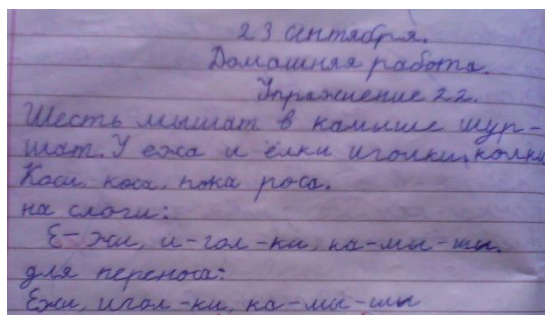 23 сентября.
Домашняя работа.
Упражнение 22.
Шесть мышат в камыше шур-
шат. У ежа и ёлки иголки колки
Коси, коса, пока роса.
на слоги:
Е-жи, и-гол-ки, ка-мы-ши.
для переноса:
Ежи, игол-ки, ка-мы-ши